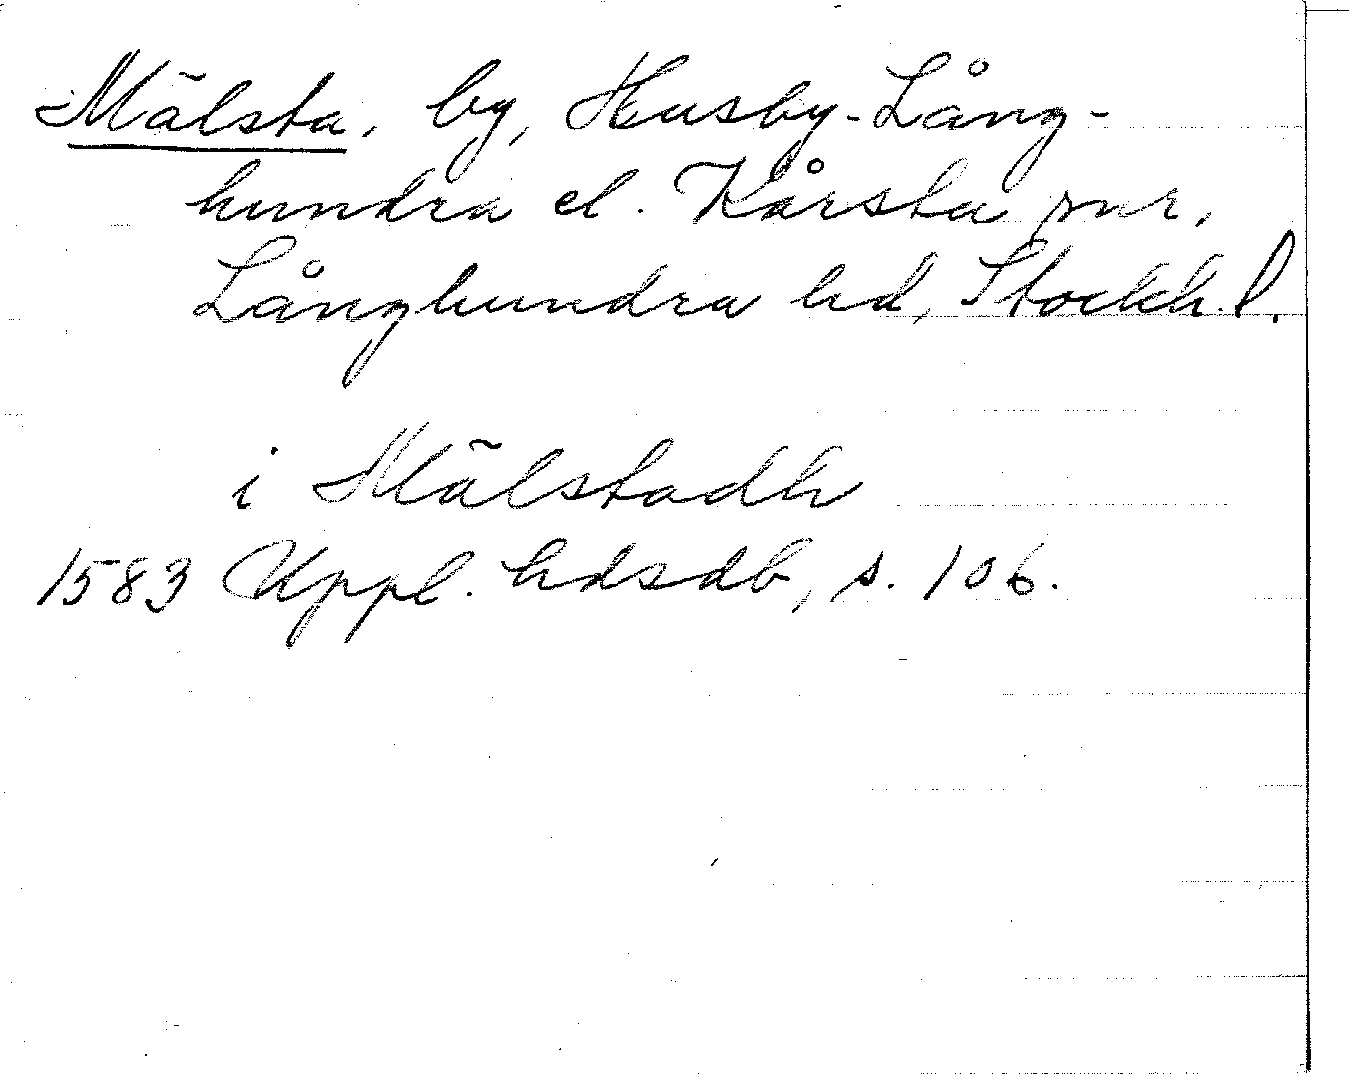 Mälsta, by, Husby-Lång-
hundra el. Kårsta snr,
Långhundra hd, Stockh. l.
i Mälstadh
1583 Uppl. hdsdb, s. 106.